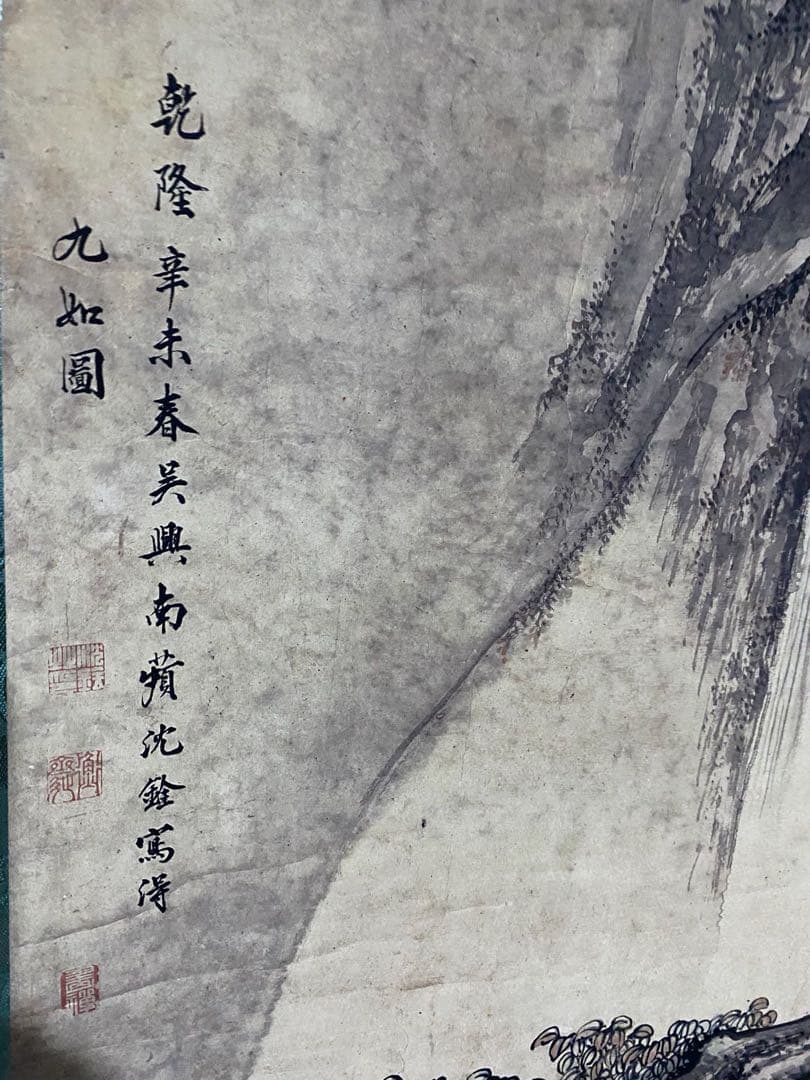 乾隆辛未春吴興南蘋沈銓寫得
九如圖